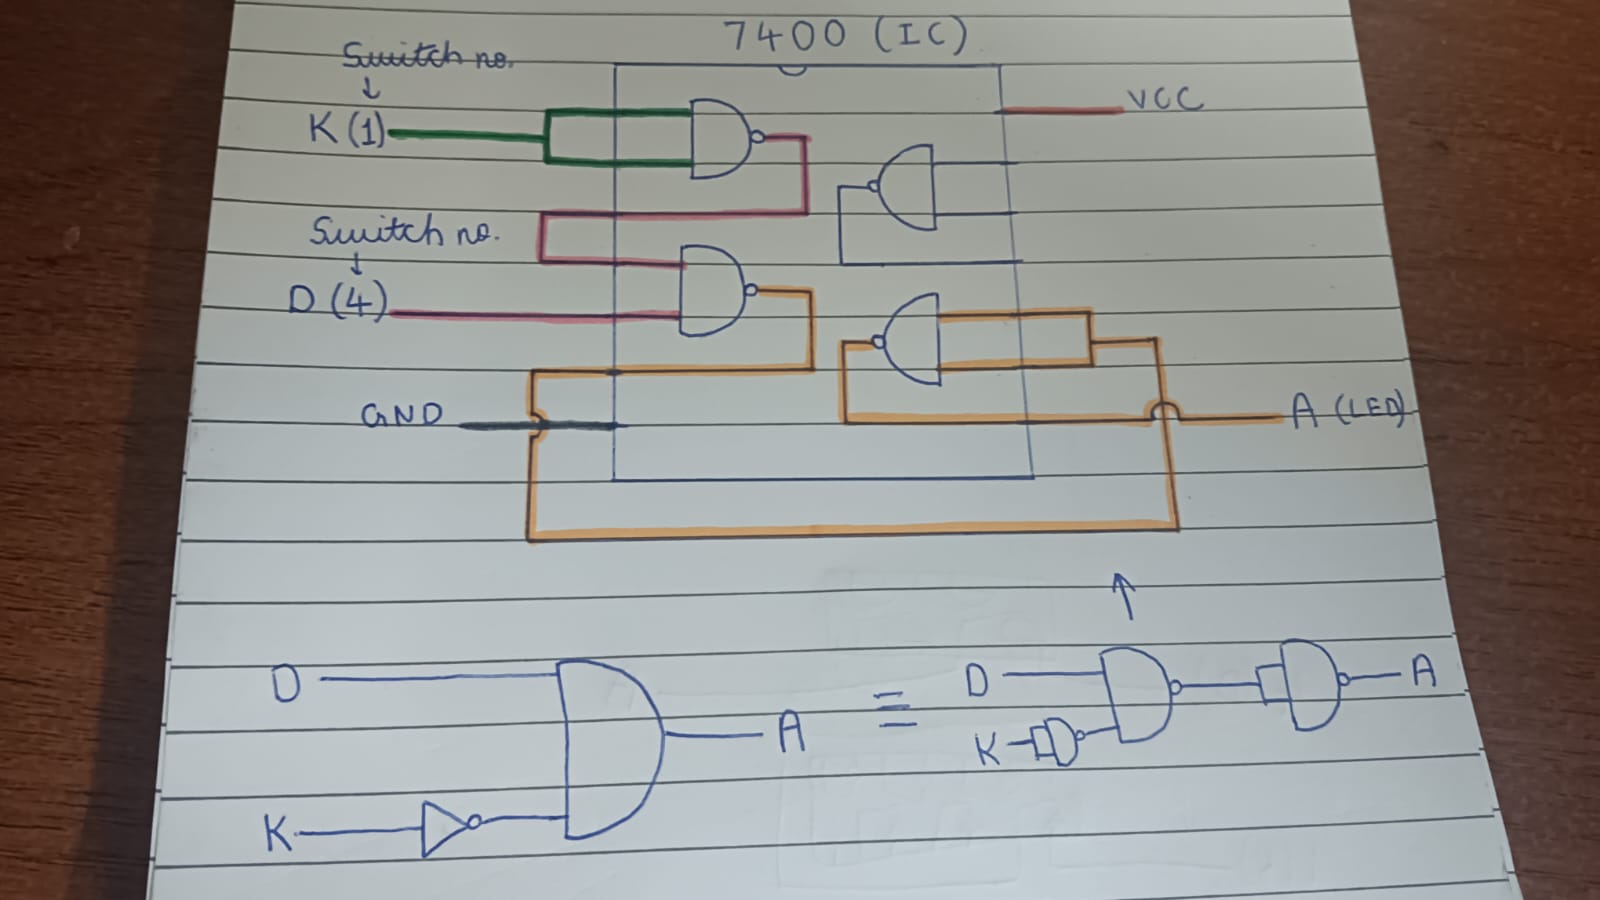 7400 (IC)
Switch no.
↓
K (1)
VCC
Switch no.
↓
D (4)
GND
A (LED)
↑
D
A
≡
D
A
K
K